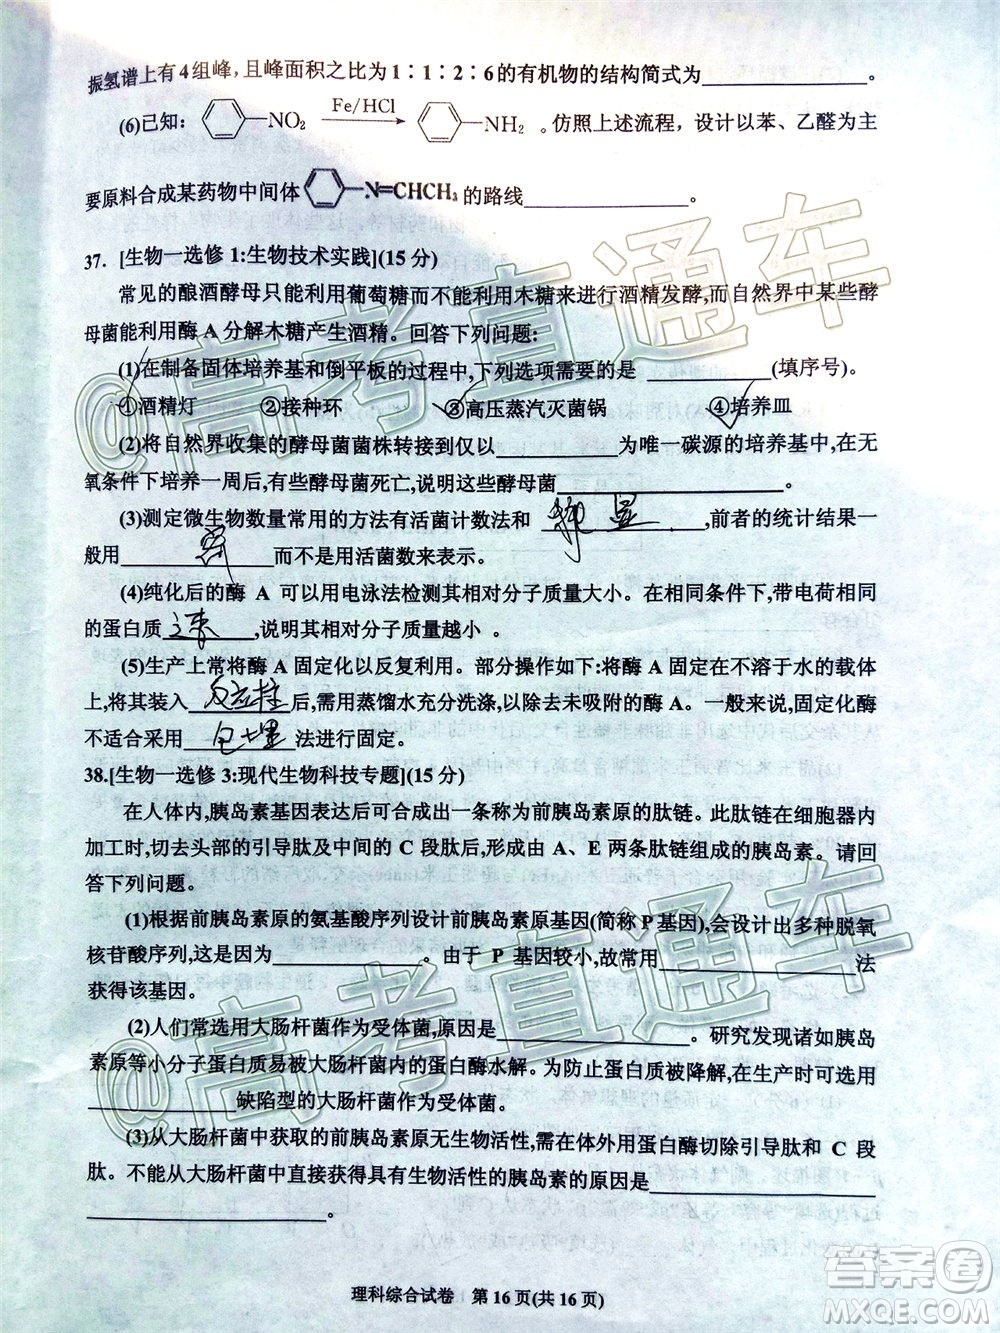 振氢谱上有4组峰，且峰面积之比为1∶1∶2∶6的有机物的结构简式为____________。
(6)已知：—NO₂ Fe/HCl —NH₂ 。仿照上述流程，设计以苯、乙醛为主
要原料合成某药物中间体 —N=CHCH₃ 的路线____________。
37. [生物一选修1:生物技术实践](15分)
常见的酿酒酵母只能利用葡萄糖而不能利用木糖来进行酒精发酵,而自然界中某些酵
母菌能利用酶A分解木糖产生酒精。回答下列问题:
(1)在制备固体培养基和倒平板的过程中,下列选项需要的是____________(填序号)。
①酒精灯 ②接种环 ③高压蒸汽灭菌锅 ④培养皿
(2)将自然界收集的酵母菌菌株转接到仅以____________为唯一碳源的培养基中,在无
氧条件下培养一周后,有些酵母菌死亡,说明这些酵母菌____________。
(3)测定微生物数量常用的方法有活菌计数法和____________,前者的统计结果一
般用____________而不是用活菌数来表示。
(4)纯化后的酶A可以用电泳法检测其相对分子质量大小。在相同条件下,带电荷相同
的蛋白质 速 ,说明其相对分子质量越小 。
(5)生产上常将酶A固定化以反复利用。部分操作如下:将酶A固定在不溶于水的载体
上,将其装入 反应柱 后,需用蒸馏水充分洗涤,以除去未吸附的酶A。一般来说,固定化酶
不适合采用 包埋 法进行固定。
38.[生物一选修3:现代生物科技专题](15分)
在人体内,胰岛素基因表达后可合成出一条称为前胰岛素原的肽链。此肽链在细胞器内
加工时,切去头部的引导肽及中间的C段肽后,形成由A、E两条肽链组成的胰岛素。请回
答下列问题。
(1)根据前胰岛素原的氨基酸序列设计前胰岛素原基因(简称P基因),会设计出多种脱氧
核苷酸序列,这是因为____________。由于P基因较小,故常用____________法
获得该基因。
(2)人们常选用大肠杆菌作为受体菌,原因是____________。研究发现诸如胰岛
素原等小分子蛋白质易被大肠杆菌内的蛋白酶水解。为防止蛋白质被降解,在生产时可选用
____________缺陷型的大肠杆菌作为受体菌。
(3)从大肠杆菌中获取的前胰岛素原无生物活性,需在体外用蛋白酶切除引导肽和C段
肽。不能从大肠杆菌中直接获得具有生物活性的胰岛素的原因是____________
____________。
理科综合试卷 第16页(共16页)
@高考直通车
@高考直通车
答案圈
MXQE.COM